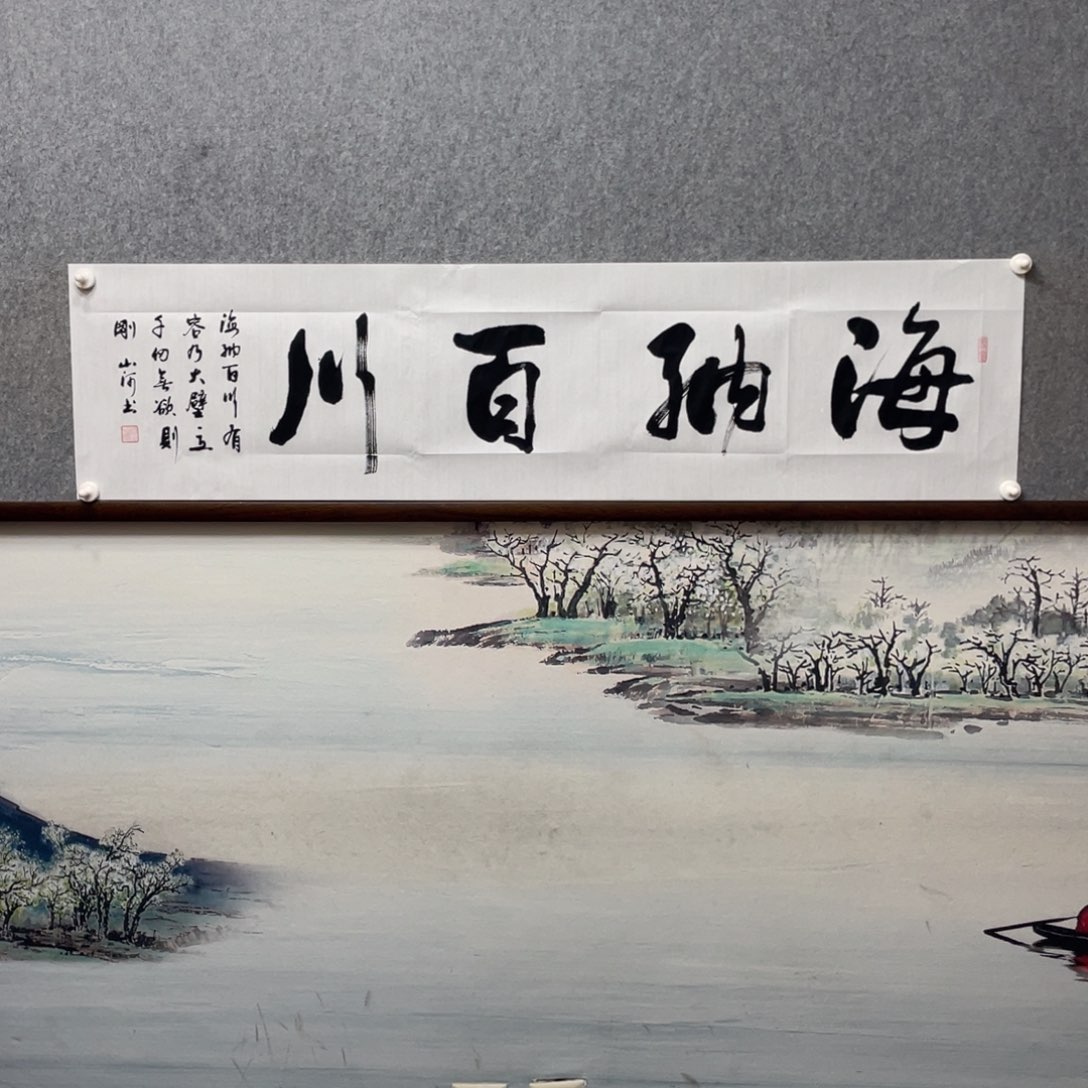 海納百川
海納百川有
容乃大壁立
千仞無欲則
剛 山河書